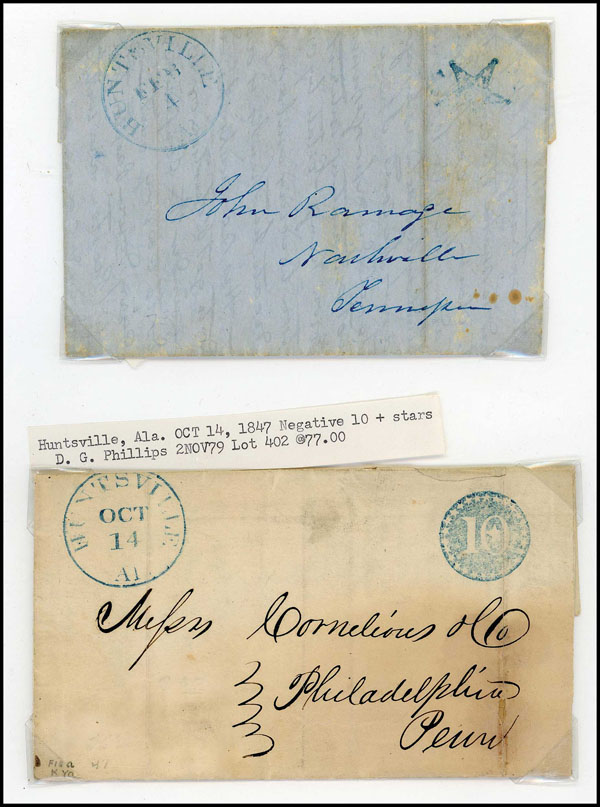 HUNTSVILLE
FEB
4
John Ramage
Nashville
Tennessee
Huntsville, Ala. OCT 14, 1847 Negative 10 + stars
D. G. Phillips 2NOV79 Lot 402 @77.00
HUNTSVILLE
OCT
14
Al.
10
Messrs Cornelious & Co
Philadelphia
Penn